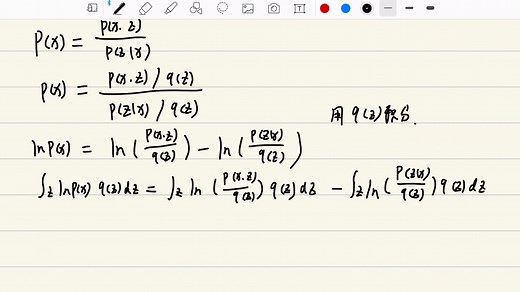 P(x) = P(x,z) / P(z|x)
P(x) = P(x,z)/q(z) / P(z|x)/q(z)
用 q(z) 积分.
ln P(x) = ln ( P(x,z) / q(z) ) − ln ( P(z|x) / q(z) )
∫z ln P(x) q(z) dz = ∫z ln ( P(x,z) / q(z) ) q(z) dz − ∫z ln ( P(z|x) / q(z) ) q(z) dz